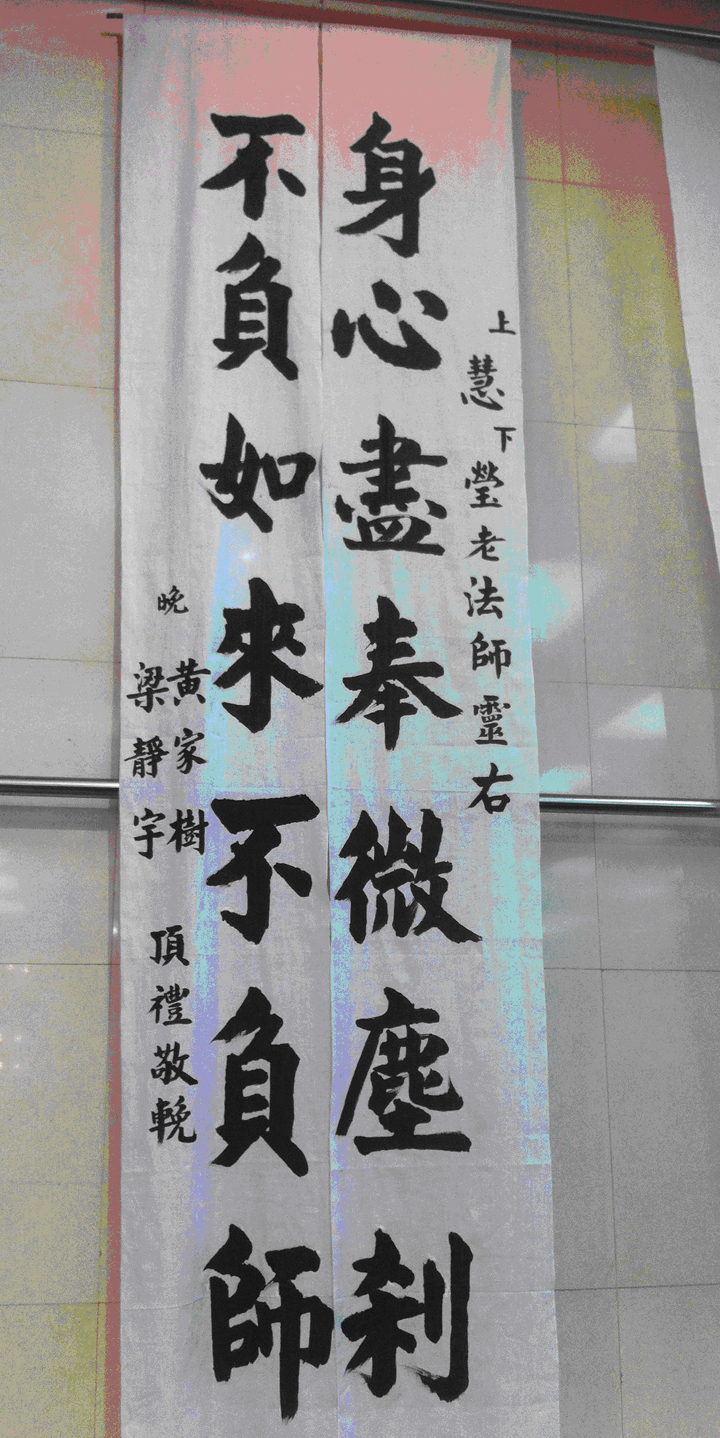 上慧下瑩老法師靈右
身心盡奉微塵剎
不負如來不負師
晚
黃家樹
梁靜宇
頂禮敬輓